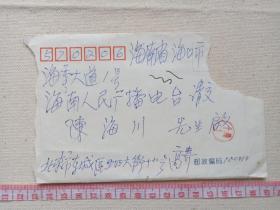 570206 海南省海口市
海秀大道1号
海南人民广播电台 请交
陈海川 先生 收
北京市东城区 大街十六号 高
邮政编码